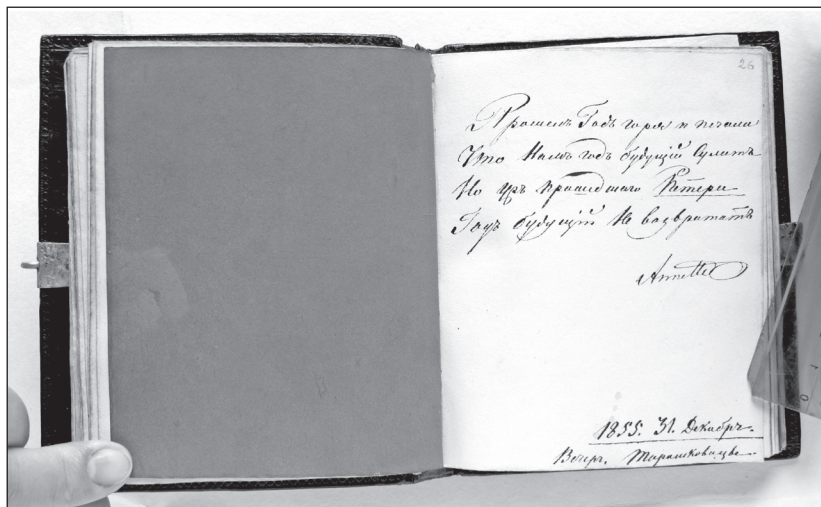 26
Прошелъ Годъ горя и печали
Что Намъ годъ будущій Сулитъ
Но Прошедшаго Потери
Годъ будущій Не возвратитъ
Annette
1855. 31. Декабр.
Вечеръ.